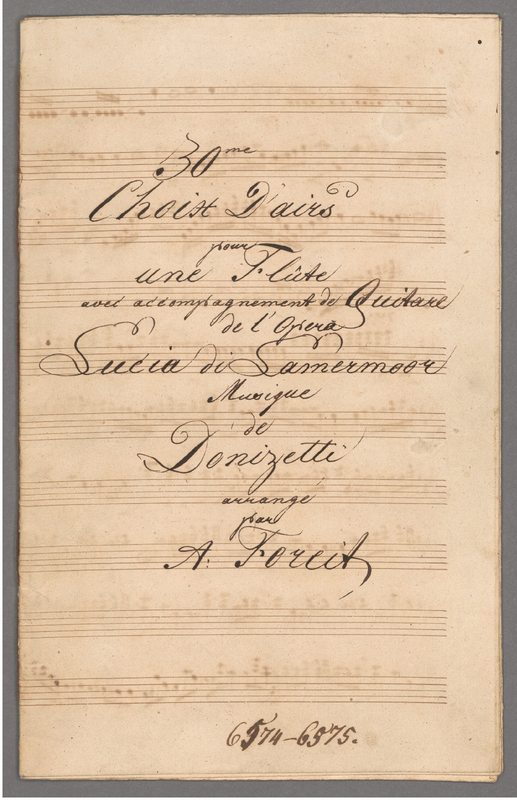 30me
Choix D'airs
pour
une Flûte
avec accompagnement de Guitare
de l'Opera
Lucia di Lamermoor
Musique
de
Donizetti
arrangé
par
A. Forcit
6574-6575.